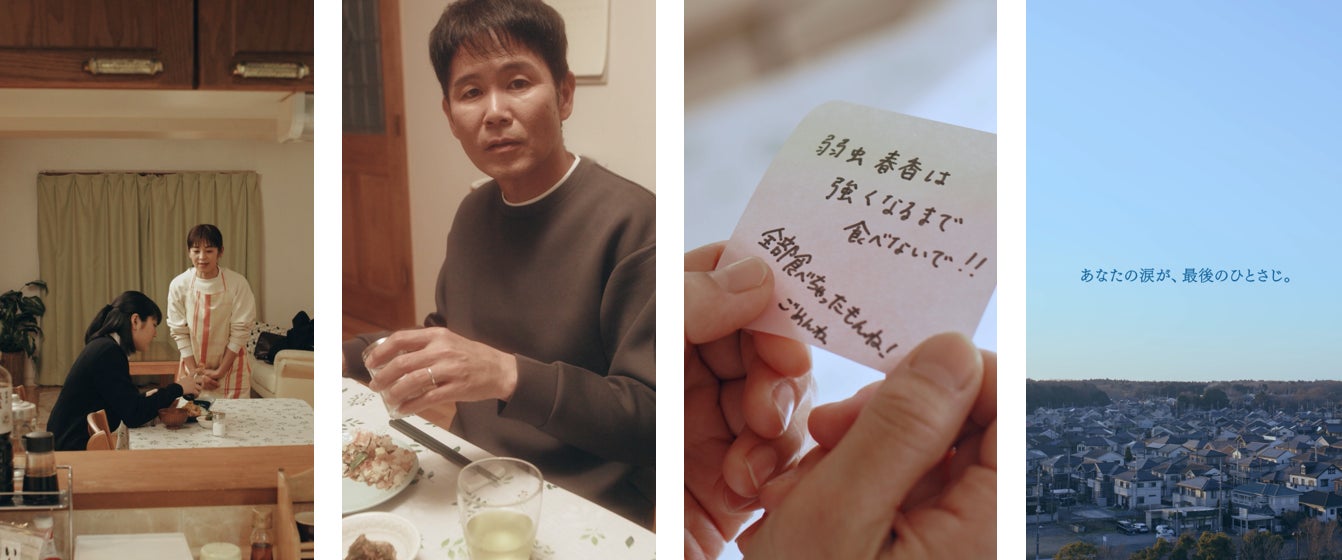 弱虫 春香は
強くなるまで
食べないで!!
全部食べちゃったもんね!
ごめんね
あなたの涙が、最後のひとさじ。